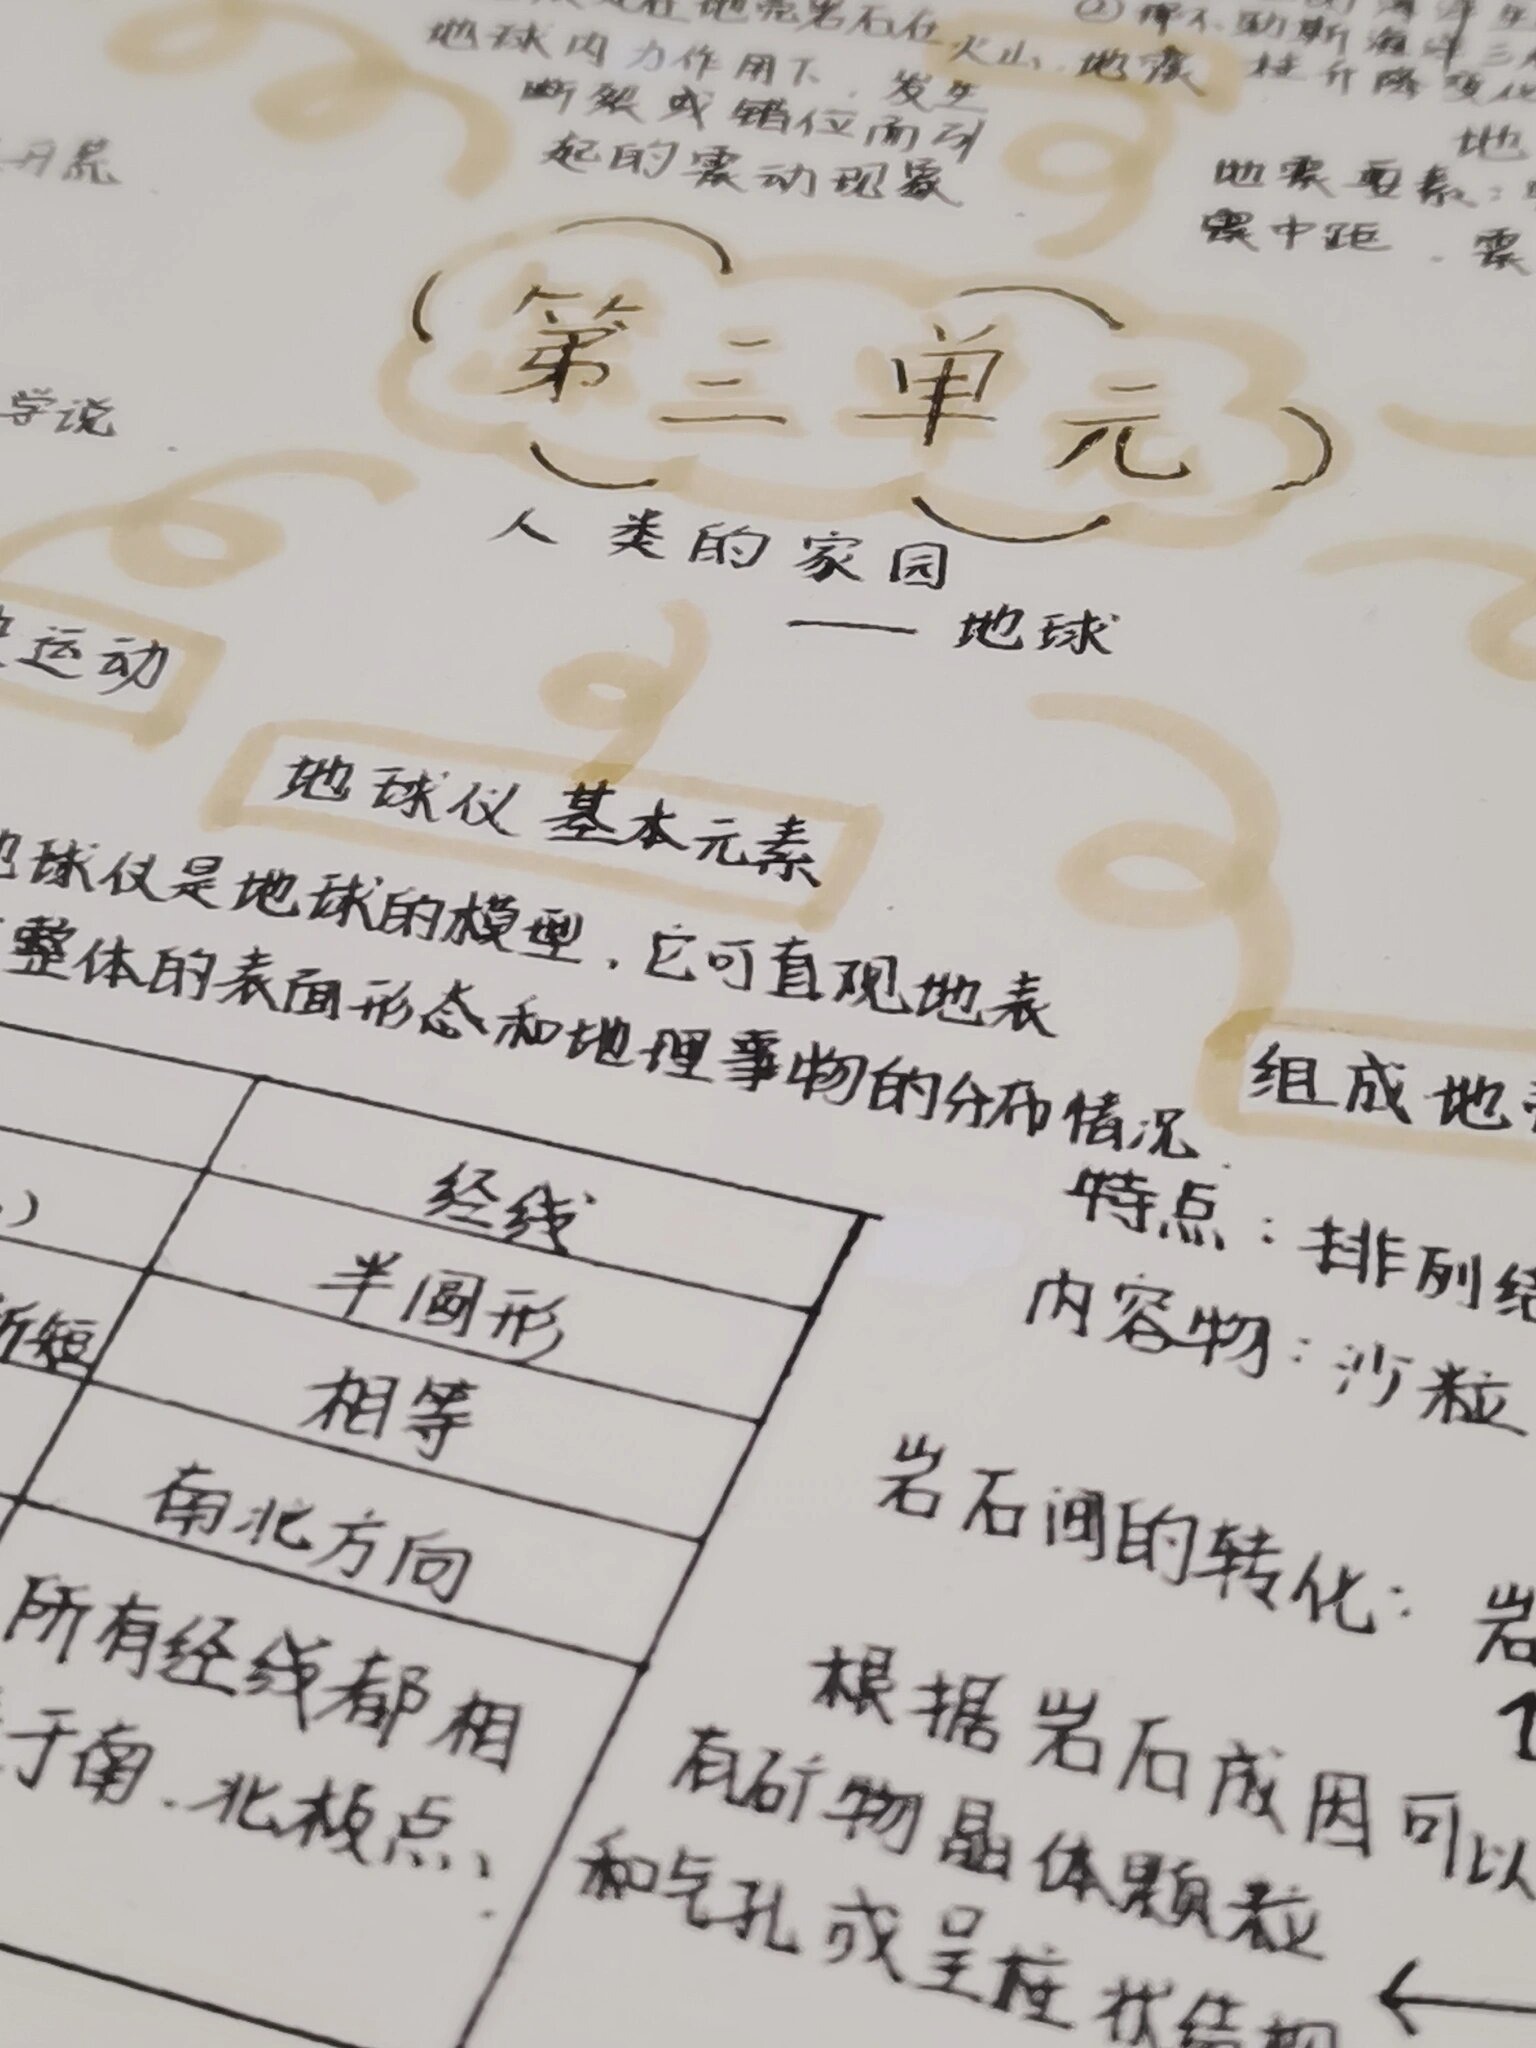 地壳岩石在
地球内力作用下,发生
断裂或错位而引
起的震动现象
火山.地震
地震要素:
震中距.震
第三单元
学说
人类的家园
——地球
运动
地球仪基本元素
地球仪是地球的模型.它可直观地表
整体的表面形态和地理事物的分布情况.
经线
半圆形
相等
短
南北方向
所有经线都相
于南.北极点;
组成地
特点:排列结
内容物:沙粒
岩石间的转化:岩
根据岩石成因可以
有矿物晶体颗粒
和气孔或呈柱状结构